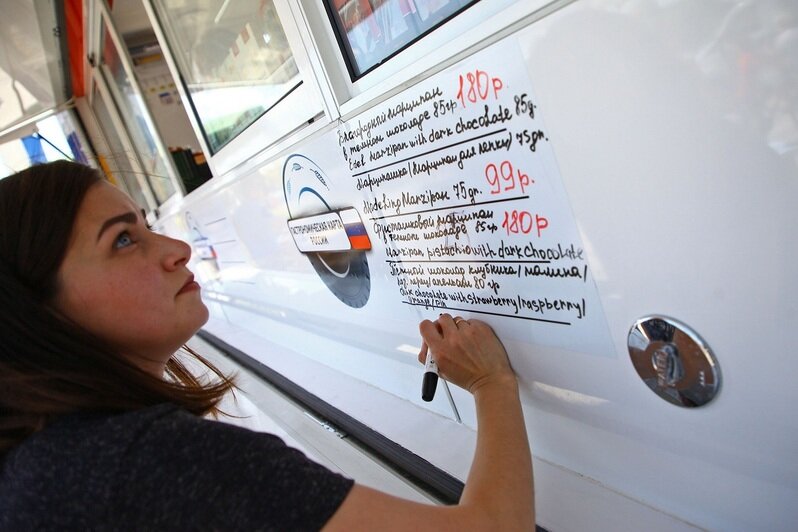 Благородный марципан
в темном шоколаде 85гр 180р.
Edel Marzipan with dark chocolate 85g.
Марципашка/марципан для лепки/75гр.
Modeling Marzipan 75gr. 99р.
Фисташковый марципан
в темном шоколаде 85гр 180р
Marzipan pistachio with dark chocolate
Тёмный шоколад клубника/малина/
апельсин 80гр
chocolate with strawberry/raspberry/
orange/
ГАСТРОНОМИЧЕСКАЯ КАРТА
РОССИИ